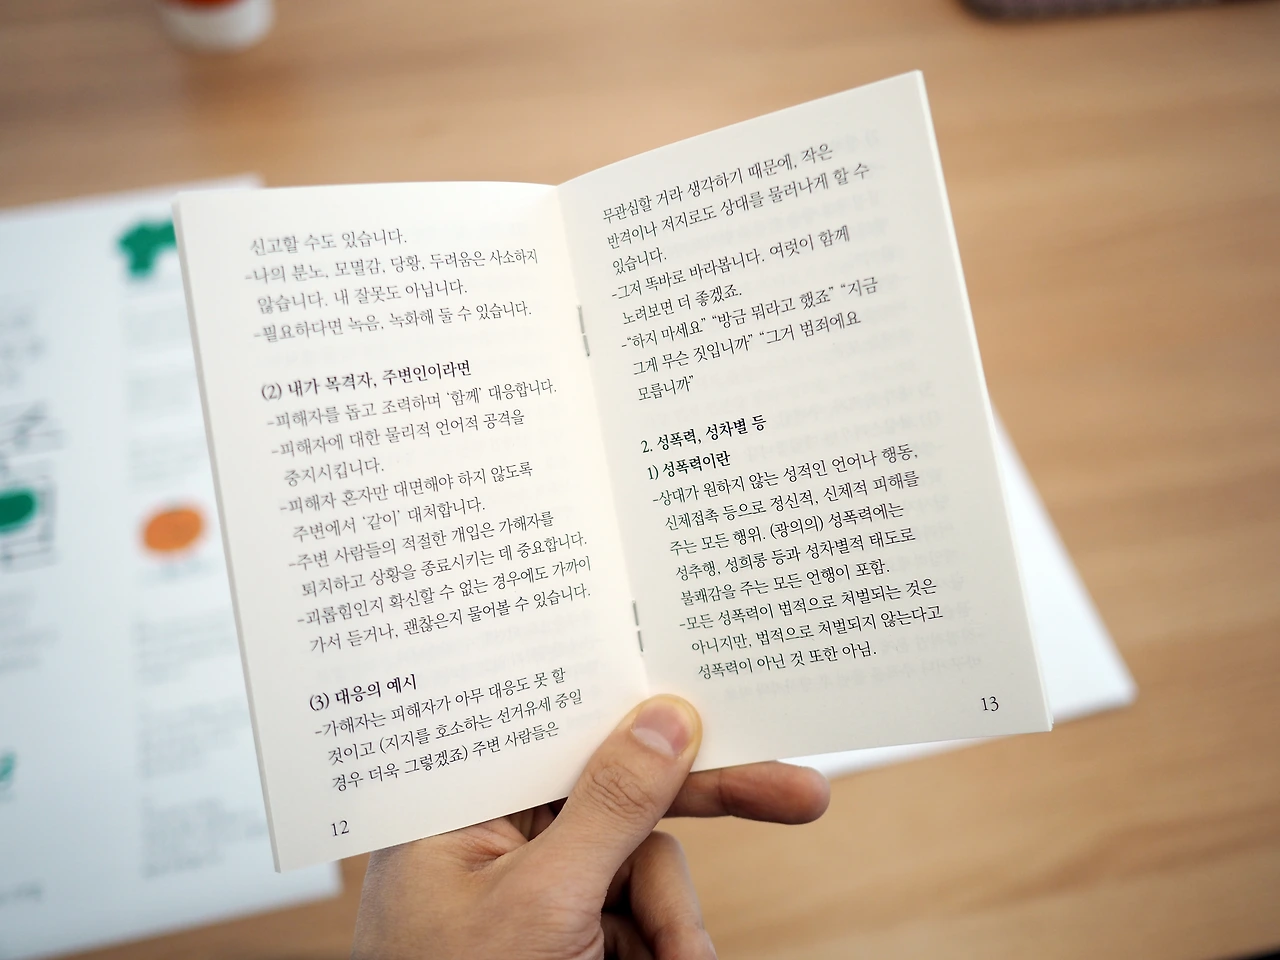 신고할 수도 있습니다.
-나의 분노, 모멸감, 당황, 두려움은 사소하지
않습니다. 내 잘못도 아닙니다.
-필요하다면 녹음, 녹화해 둘 수 있습니다.
(2) 내가 목격자, 주변인이라면
-피해자를 돕고 조력하며 ‘함께’ 대응합니다.
-피해자에 대한 물리적 언어적 공격을
중지시킵니다.
-피해자 혼자만 대면해야 하지 않도록
주변에서 ‘같이’ 대처합니다.
-주변 사람들의 적절한 개입은 가해자를
퇴치하고 상황을 종료시키는 데 중요합니다.
-괴롭힘인지 확신할 수 없는 경우에도 가까이
가서 듣거나, 괜찮은지 물어볼 수 있습니다.
(3) 대응의 예시
-가해자는 피해자가 아무 대응도 못 할
것이고 (지지를 호소하는 선거유세 중일
경우 더욱 그렇겠죠) 주변 사람들은
12
무관심할 거라 생각하기 때문에, 작은
반격이나 저지로도 상대를 물러나게 할 수
있습니다.
-그저 똑바로 바라봅니다. 여럿이 함께
노려보면 더 좋겠죠.
-“하지 마세요” “방금 뭐라고 했죠” “지금
그게 무슨 짓입니까” “그거 범죄에요
모릅니까”
2. 성폭력, 성차별 등
1) 성폭력이란
-상대가 원하지 않는 성적인 언어나 행동,
신체접촉 등으로 정신적, 신체적 피해를
주는 모든 행위. (광의의) 성폭력에는
성추행, 성희롱 등과 성차별적 태도로
불쾌감을 주는 모든 언행이 포함.
-모든 성폭력이 법적으로 처벌되는 것은
아니지만, 법적으로 처벌되지 않는다고
성폭력이 아닌 것 또한 아님.
13